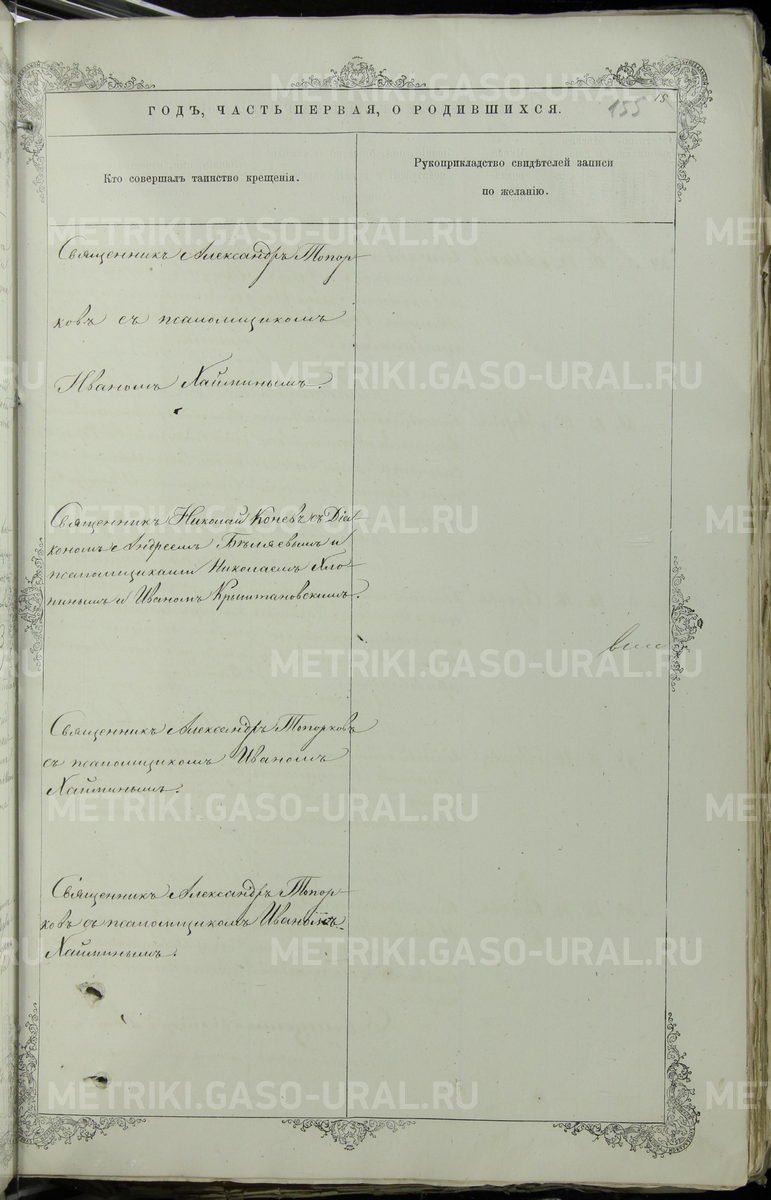 ГОДЪ, ЧАСТЬ ПЕРВАЯ, О РОДИВШИХСЯ.
155
15
Кто совершалъ таинство крещенія.
Рукоприкладство свидѣтелей записи
по желанію.
Священникъ Александръ Топор-
ковъ съ псаломщикомъ
Иваномъ Хайминымъ.
Священникъ Николай Коневъ съ Діа-
кономъ Андреемъ Бѣляевымъ и
псаломщиками Николаемъ Хло-
пинымъ и Иваномъ Крыштановскимъ.
Священникъ Александръ Топорковъ
съ псаломщикомъ Иваномъ
Хайминымъ.
Священникъ Александръ Топор-
ковъ съ псаломщикомъ Иваномъ
Хайминымъ.
METRIKI.GASO-URAL.RU